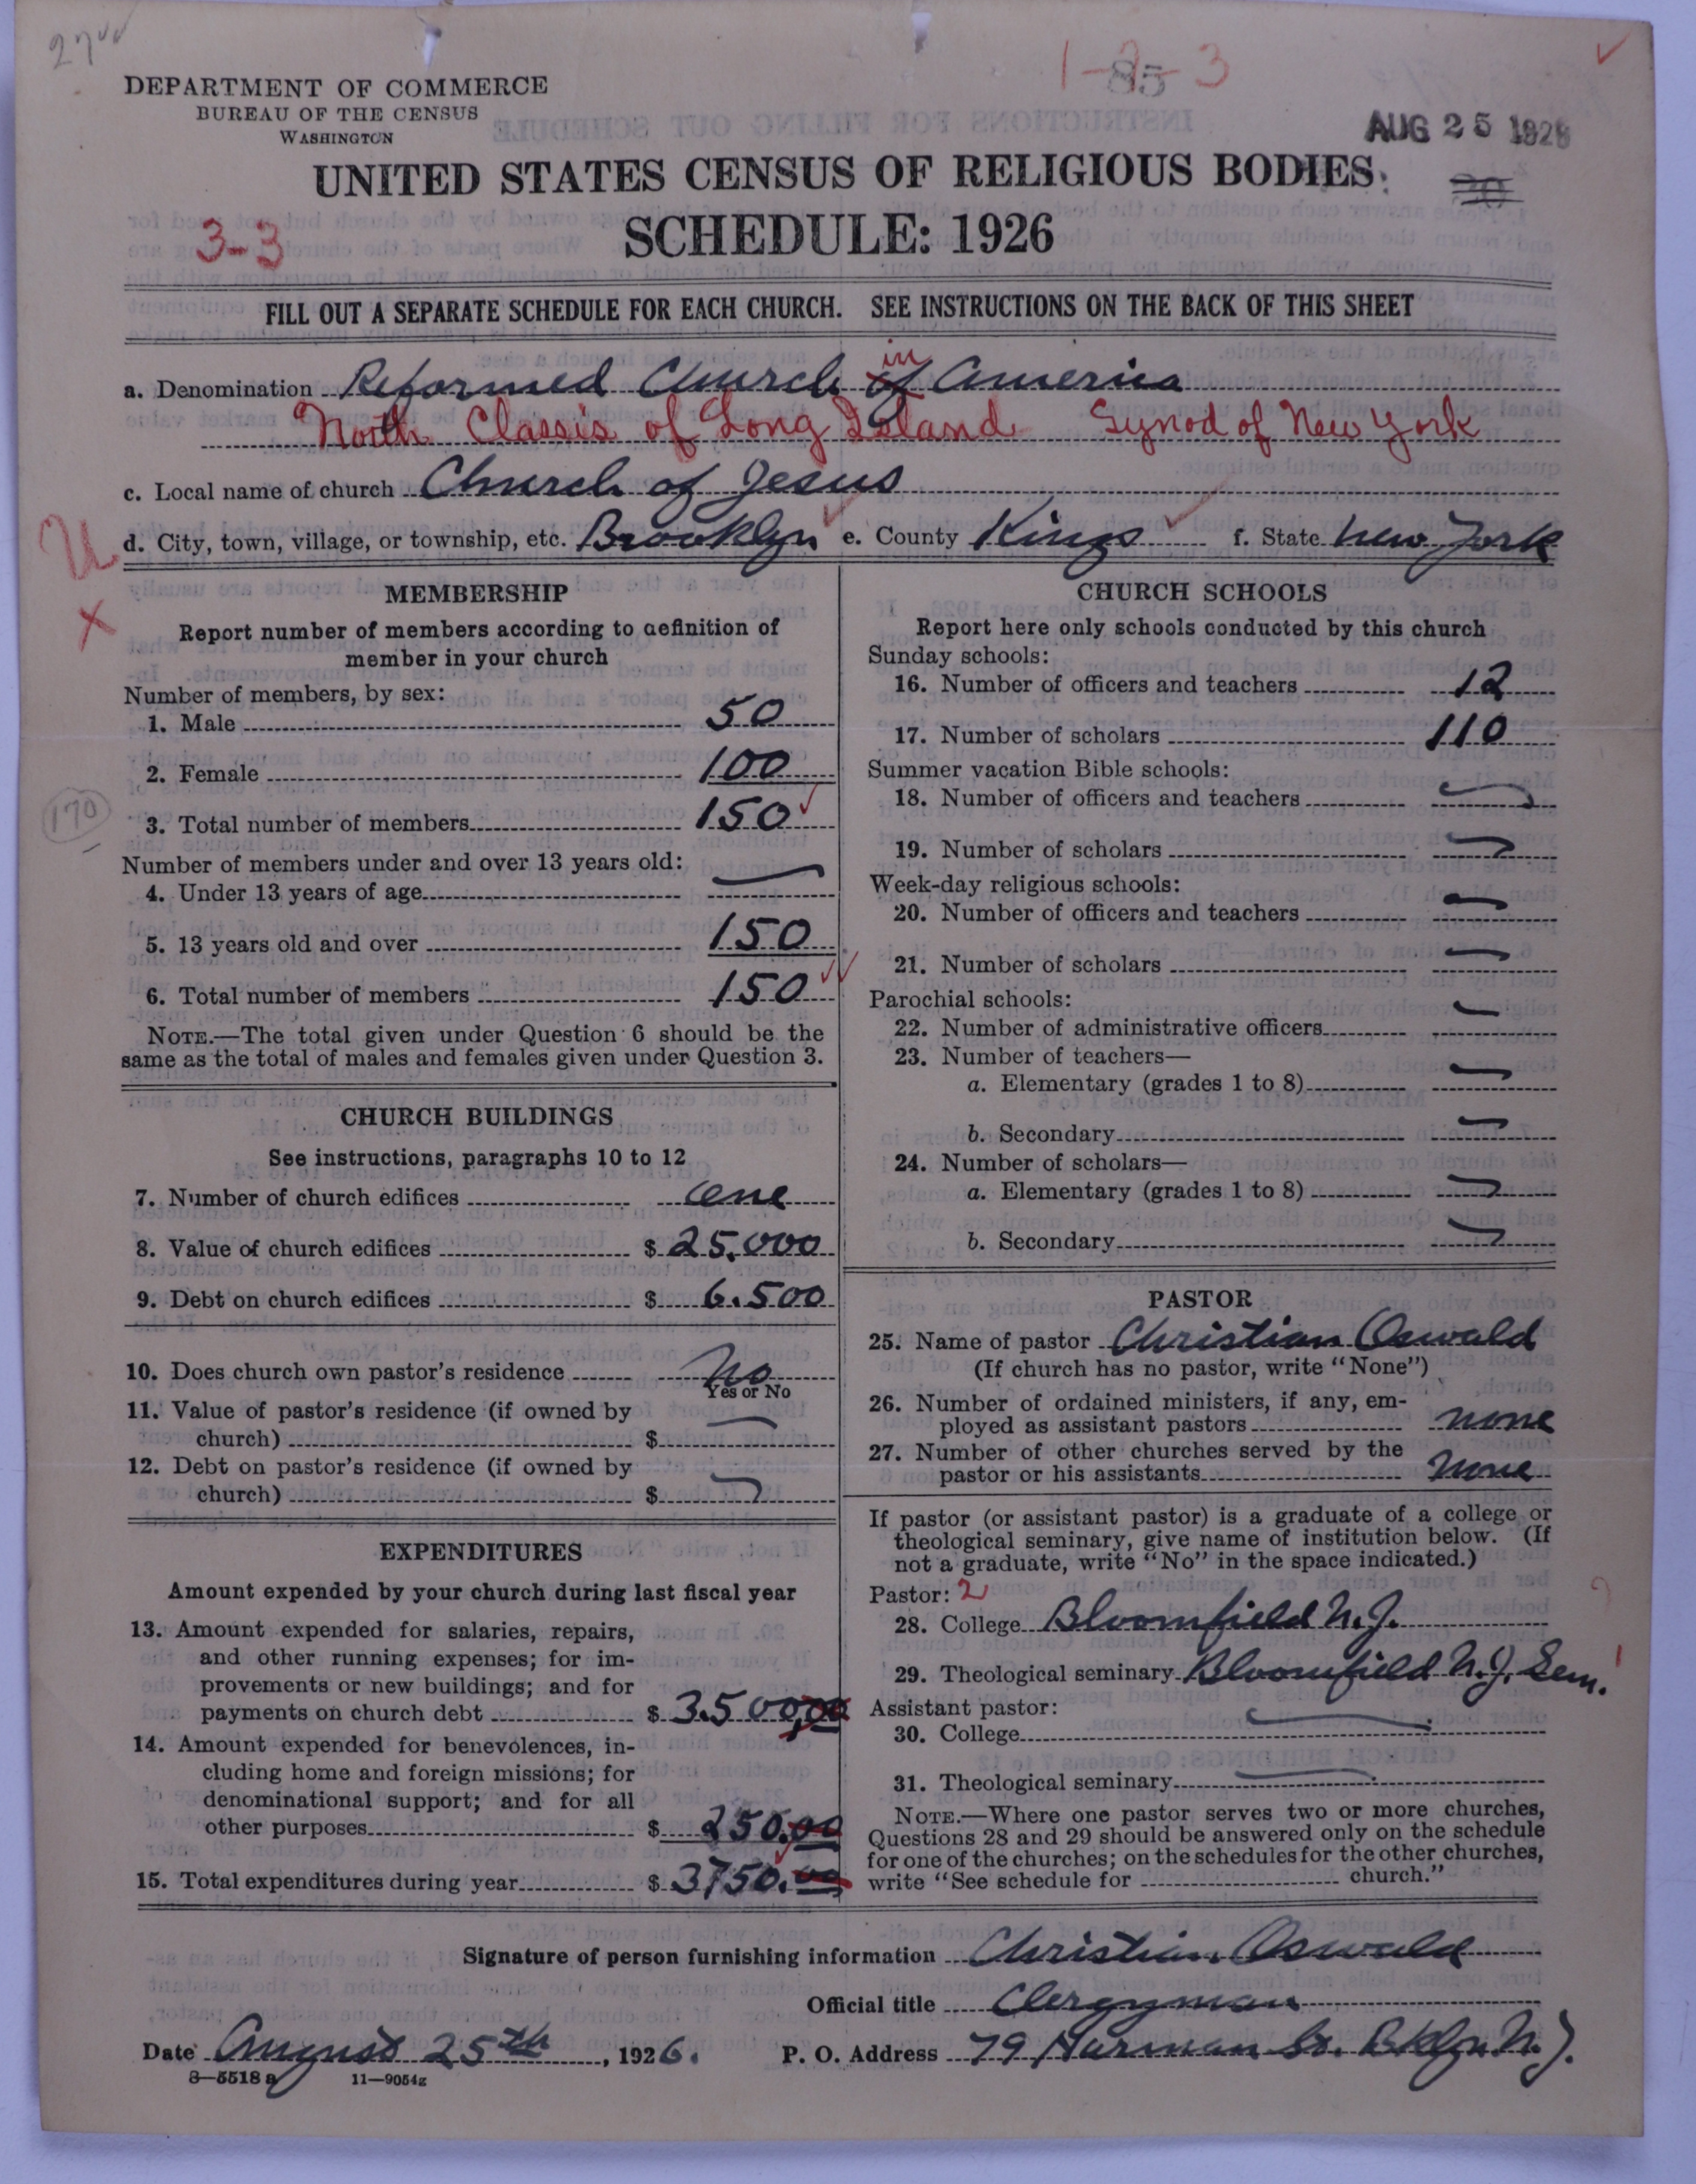 27
1-2-3
85
DEPARTMENT OF COMMERCE
BUREAU OF THE CENSUS
WASHINGTON
AUG 25 1926
UNITED STATES CENSUS OF RELIGIOUS BODIES
SCHEDULE: 1926
3-3
FILL OUT A SEPARATE SCHEDULE FOR EACH CHURCH. SEE INSTRUCTIONS ON THE BACK OF THIS SHEET
a. Denomination Reformed Church of in America
North Classis of Long Island Synod of New York
c. Local name of church Church of Jesus
d. City, town, village, or township, etc. Brooklyn e. County Kings f. State New York
U
X
MEMBERSHIP
Report number of members according to definition of
member in your church
Number of members, by sex:
1. Male 50
2. Female 100
3. Total number of members 150
170
Number of members under and over 13 years old:
4. Under 13 years of age —
5. 13 years old and over 150
6. Total number of members 150
NOTE.—The total given under Question 6 should be the
same as the total of males and females given under Question 3.
CHURCH BUILDINGS
See instructions, paragraphs 10 to 12
7. Number of church edifices one
8. Value of church edifices $ 25.000
9. Debt on church edifices $ 6.500
10. Does church own pastor's residence No
Yes or No
11. Value of pastor's residence (if owned by
church) $ —
12. Debt on pastor's residence (if owned by
church) $ —
EXPENDITURES
Amount expended by your church during last fiscal year
13. Amount expended for salaries, repairs,
and other running expenses; for im-
provements or new buildings; and for
payments on church debt $ 3.500,00
14. Amount expended for benevolences, in-
cluding home and foreign missions; for
denominational support; and for all
other purposes $ 250.00
15. Total expenditures during year $ 3750.00
CHURCH SCHOOLS
Report here only schools conducted by this church
Sunday schools:
16. Number of officers and teachers 12
17. Number of scholars 110
Summer vacation Bible schools:
18. Number of officers and teachers —
19. Number of scholars —
Week-day religious schools:
20. Number of officers and teachers —
21. Number of scholars —
Parochial schools:
22. Number of administrative officers —
23. Number of teachers—
a. Elementary (grades 1 to 8) —
b. Secondary —
24. Number of scholars—
a. Elementary (grades 1 to 8) —
b. Secondary —
PASTOR
25. Name of pastor Christian Oswald
(If church has no pastor, write "None")
26. Number of ordained ministers, if any, em-
ployed as assistant pastors none
27. Number of other churches served by the
pastor or his assistants none
If pastor (or assistant pastor) is a graduate of a college or
theological seminary, give name of institution below. (If
not a graduate, write "No" in the space indicated.)
Pastor: 2
28. College Bloomfield N.J.
29. Theological seminary Bloomfield N.J. Sem.
Assistant pastor:
30. College —
31. Theological seminary —
NOTE.—Where one pastor serves two or more churches,
Questions 28 and 29 should be answered only on the schedule
for one of the churches; on the schedules for the other churches,
write "See schedule for church."
Signature of person furnishing information Christian Oswald
Official title Clergyman
Date August 25th, 1926. P. O. Address 79 Harman St. Bklyn. N.Y.
8—5518 a 11—9054g